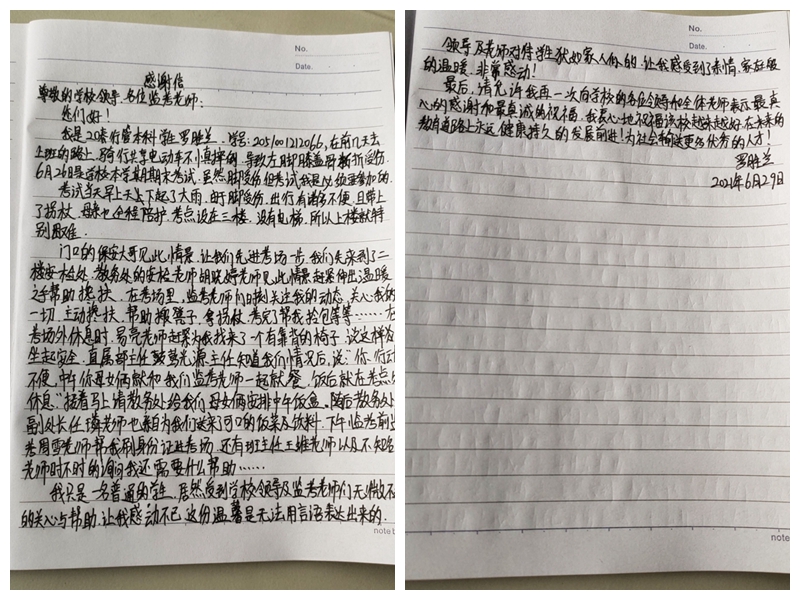 No.
Date.
感谢信
尊敬的学校领导、各位监考老师:
您们好!
我是20本行管本科学生罗胜兰,学号:2051001212066,在前几天去
上班的路上,骑行共享电动车不小真摔倒,导致左脚膝盖骨折受伤.
6月26日是学校本学期期末考试,虽然脚受伤但考试我是必须要参加的.
考试当天早上天下起了大雨,由于脚受伤,出行有诸多不便,且带上
了拐杖,母亲也全程陪护,考点设在三楼,没有电梯,所以上楼就特
别困难.
门口的保安大哥见此情景,让我们先进考场一步,我们先来到了二
楼安检处,教务处的安检老师胡跃婷老师见此情景赶紧伸出温暖
之手帮助搀扶.在考场里,监考老师们时刻关注我的动态,关心我的
一切,主动搀扶、帮助搬凳子、拿拐杖、考完了帮我拎包等等……在
考场外休息时,易亮老师赶紧为我找来了一个有靠背的椅子,说这样
坐起安全.直属部主任龚光源主任知道我们情况后,说:“你行动
不便,中午你母女俩就和我们监考老师一起就餐,饭后就在考点
休息”接着马上请教务处给我们母女俩安排中午饭盒.随后教务处
副处长任璋老师也亲自为我们送来了可口的饭菜及饮料.下午监考前
老周雪老师帮我刷身份证进考场,还有班主任王维老师以及不知名
老师时不时的询问我还需要什么帮助……
我只是一名普通的学生,居然受到学校领导及监考老师们无微不
的关心与帮助,让我感动不已,这份温馨是无法用言语表达出来的.
note
No.
Date.
领导及老师对待学生犹如家人似的,让我感受到了亲情、家庭般
的温暖,非常感动!
最后,请允许我再一次向学校的各位领导和全体老师表示最真
心的感谢和最真诚的祝福,我衷心地祝福该校越来越好,在未来的
教育道路上永远健康持久的发展前进!为社会输送更多优秀的人才!
罗胜兰
2021年6月29日
note